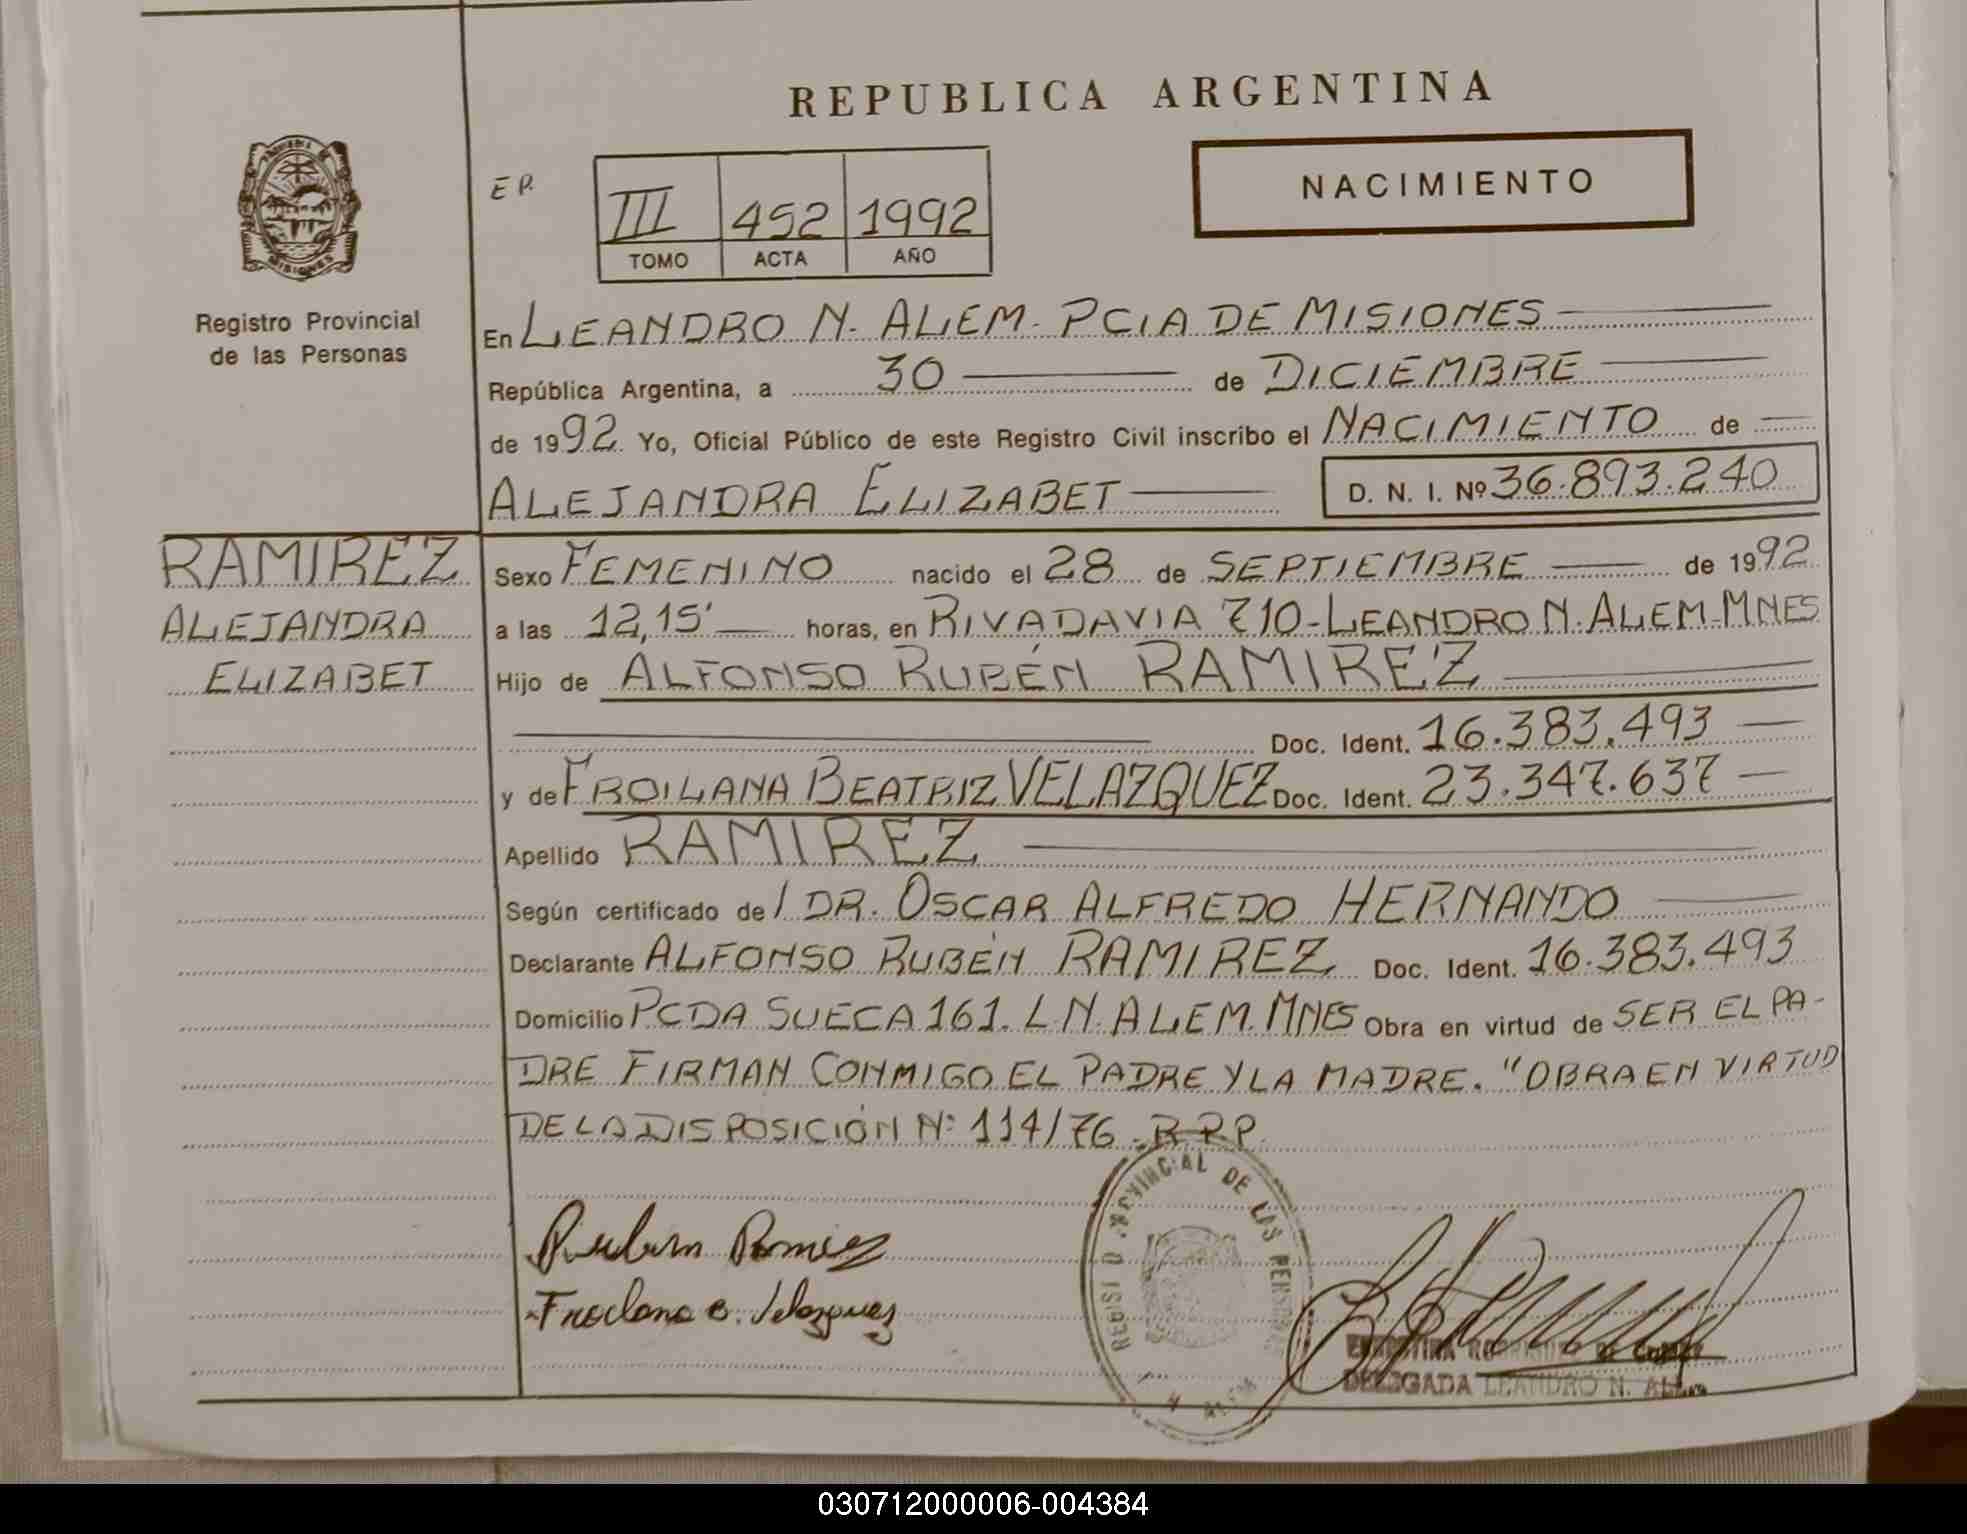 REPUBLICA ARGENTINA
NACIMIENTO
E P.
III 452 1992
TOMO ACTA AÑO
MISIONES
Registro Provincial
de las Personas
En LEANDRO N. ALEM. PCIA DE MISIONES
República Argentina, a 30 de DICIEMBRE
de 1992. Yo, Oficial Público de este Registro Civil inscribo el NACIMIENTO de
ALEJANDRA ELIZABET D. N. I. Nº 36.893.240
RAMIREZ
ALEJANDRA
ELIZABET
Sexo FEMENINO nacido el 28 de SEPTIEMBRE de 1992
a las 12,15' horas, en RIVADAVIA 710-LEANDRO N. ALEM-MNES
Hijo de ALFONSO RUBÉN RAMIREZ
Doc. Ident. 16.383.493
y de FROILANA BEATRIZ VELAZQUEZ Doc. Ident. 23.347.637
Apellido RAMIREZ
Según certificado de l DR. OSCAR ALFREDO HERNANDO
Declarante ALFONSO RUBÉN RAMIREZ Doc. Ident. 16.383.493
Domicilio PCDA SUECA 161. L.N. ALEM. MNES Obra en virtud de SER EL PA-
DRE FIRMAN CONMIGO EL PADRE Y LA MADRE. "OBRA EN VIRTUD
DE LA DISPOSICIÓN Nº 114/76 - R.P.P.
REGISTRO PROVINCIAL DE LAS PERSONAS
L. N. ALEM
Ruben Ramirez
Froilana B. Velazquez
DELEGADA LEANDRO N. ALEM
030712000006-004384